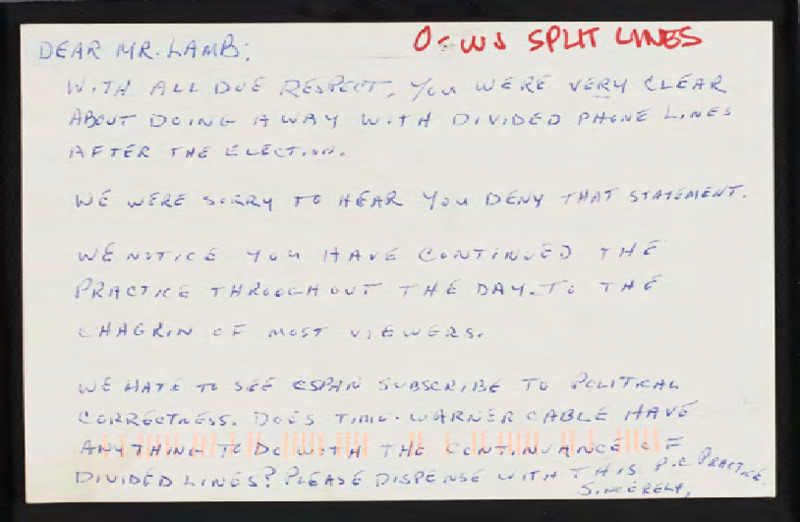 O-WJ SPLIT LINES
DEAR MR. LAMB:
WITH ALL DUE RESPECT, YOU WERE VERY CLEAR
ABOUT DOING AWAY WITH DIVIDED PHONE LINES
AFTER THE ELECTION.
WE WERE SORRY TO HEAR YOU DENY THAT STATEMENT.
WE NOTICE YOU HAVE CONTINUED THE
PRACTICE THROUGHOUT THE DAY. TO THE
CHAGRIN OF MOST VIEWERS.
WE HATE TO SEE CSPAN SUBSCRIBE TO POLITICAL
CORRECTNESS. DOES TIME-WARNER CABLE HAVE
ANYTHING TO DO WITH THE CONTINUANCE OF
DIVIDED LINES? PLEASE DISPENSE WITH THIS P.C PRACTICE.
SINCERELY,